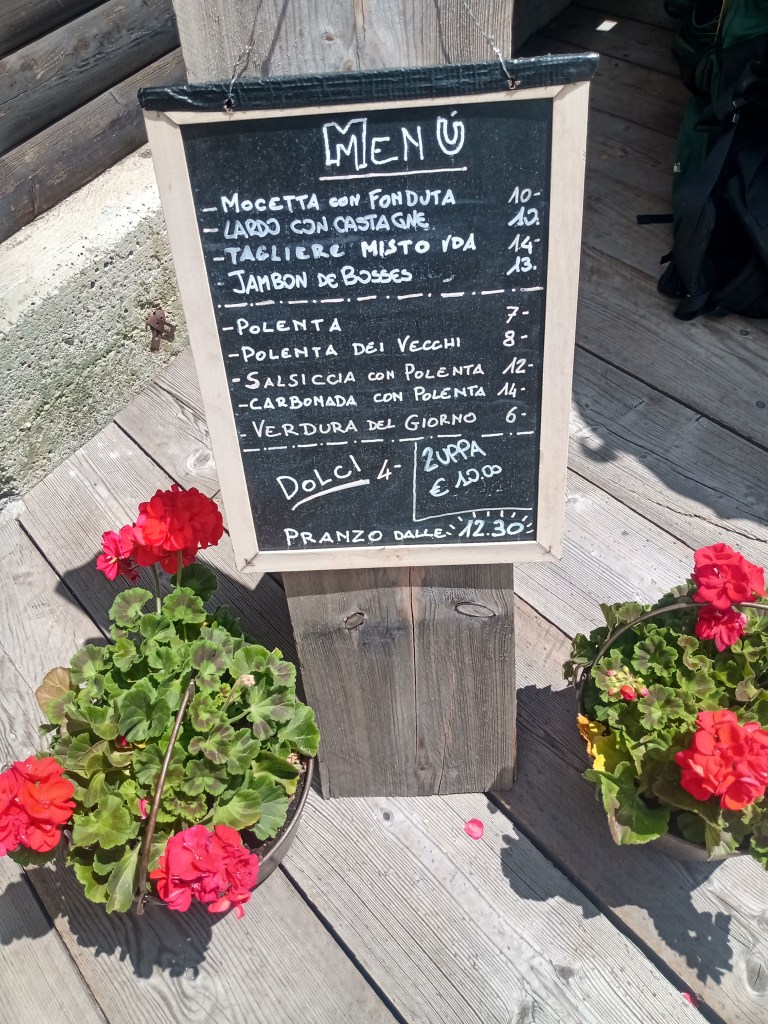 MENÚ
- MOCETTA CON FONDUTA 10-
- LARDO CON CASTAGNE 10.
- TAGLIERE MISTO VDA 14-
- JAMBON DE BOSSES 13.
- POLENTA 7-
- POLENTA DEI VECCHI 8-
- SALSICCIA CON POLENTA 12-
- CARBONADA CON POLENTA 14-
- VERDURA DEL GIORNO 6-
DOLCI 4-
ZUPPA
€ 10.00
PRANZO DALLE 12.30